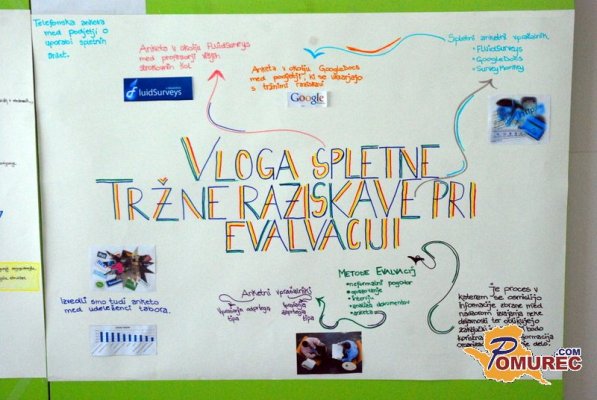 Telefonska anketa
med podjetji o
uporabi spletnih
Anketa v okolju FluidSurveys
med profesorji višjih
strokovnih šol
FluidSurveys
Anketa v okolju GoogleDocs
med podjetji, ki se ukvarjajo
s tržnimi raziskavami
Google
Spletni anketni vprašalnik
• FLUIDSurveys
• GoogleDocs
• SurveyMonkey
VLOGA SPLETNE
TRŽNE RAZISKAVE PRI
EVALVACIJI
Izvedli smo tudi anketo
med udeleženci tabora.
Anketni vprašalniki
vprašanja odprtega
tipa
vprašanja
zaprtega
tipa
METODE EVALVACIJ
• neformalni pogovor
• opazovanje
• intervju
• analiza dokumentov
• anketa
Je proces v
katerem se
informacije zbrane med
nadzorom izvajanja neke
dejavnosti ter oblikujejo
zaključki
bodo
POMUREC.COM